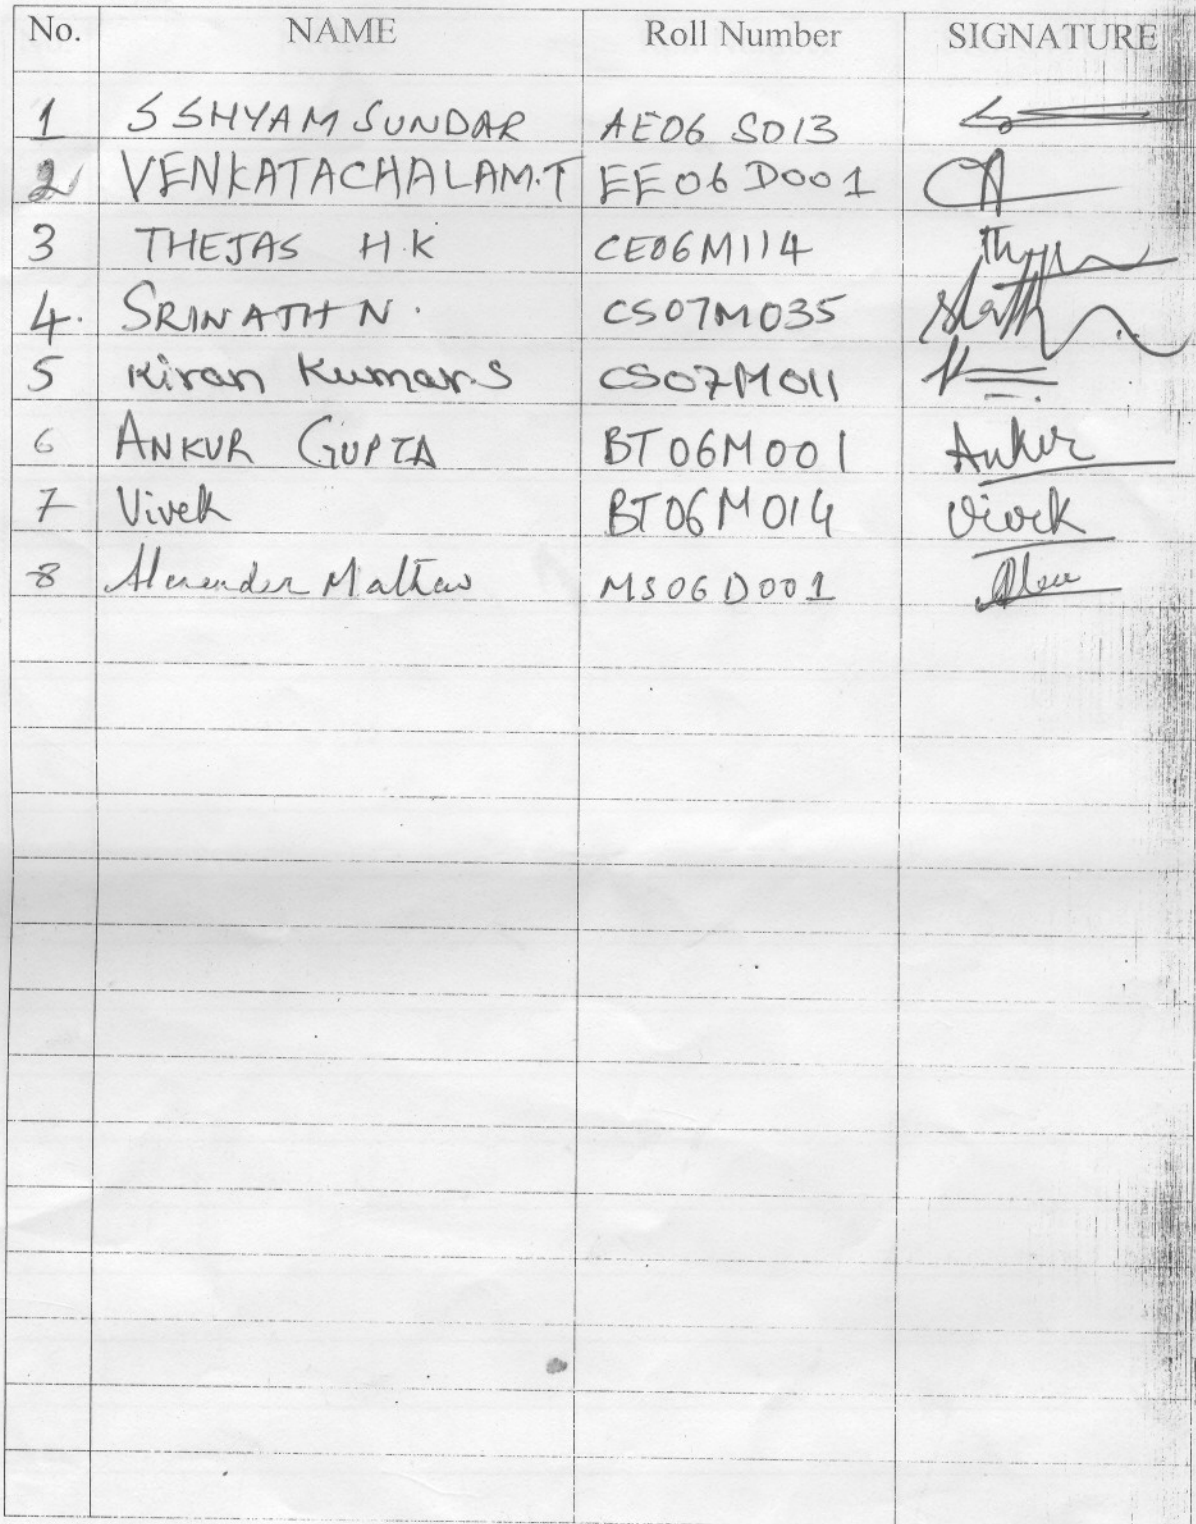 No. NAME Roll Number SIGNATURE
1 S SHYAM SUNDAR AE06 S013
2 VENKATACHALAM.T EE06D001
3 THEJAS H.K CE06M114
4. SRINATH N. CS07M035
5 Kiran Kumar.S CS07M011
6 ANKUR GUPTA BT06M001 Ankur
7 Vivek BT06M014 Vivek
8 Alexander Mathew MS06D001